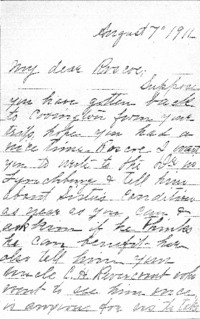 August 7" 1911
My dear Roscoe;
Suppose
you have gotten back
to Covington from your
trip, hope you had a
nice time. Roscoe I want
you to write to the
Lynchburg & tell him
about Sister's condition
as near as you can &
ask him if he thinks
he can benefit her
also tell him your
uncle C. H. who
went to see him once
is anxious for us to take